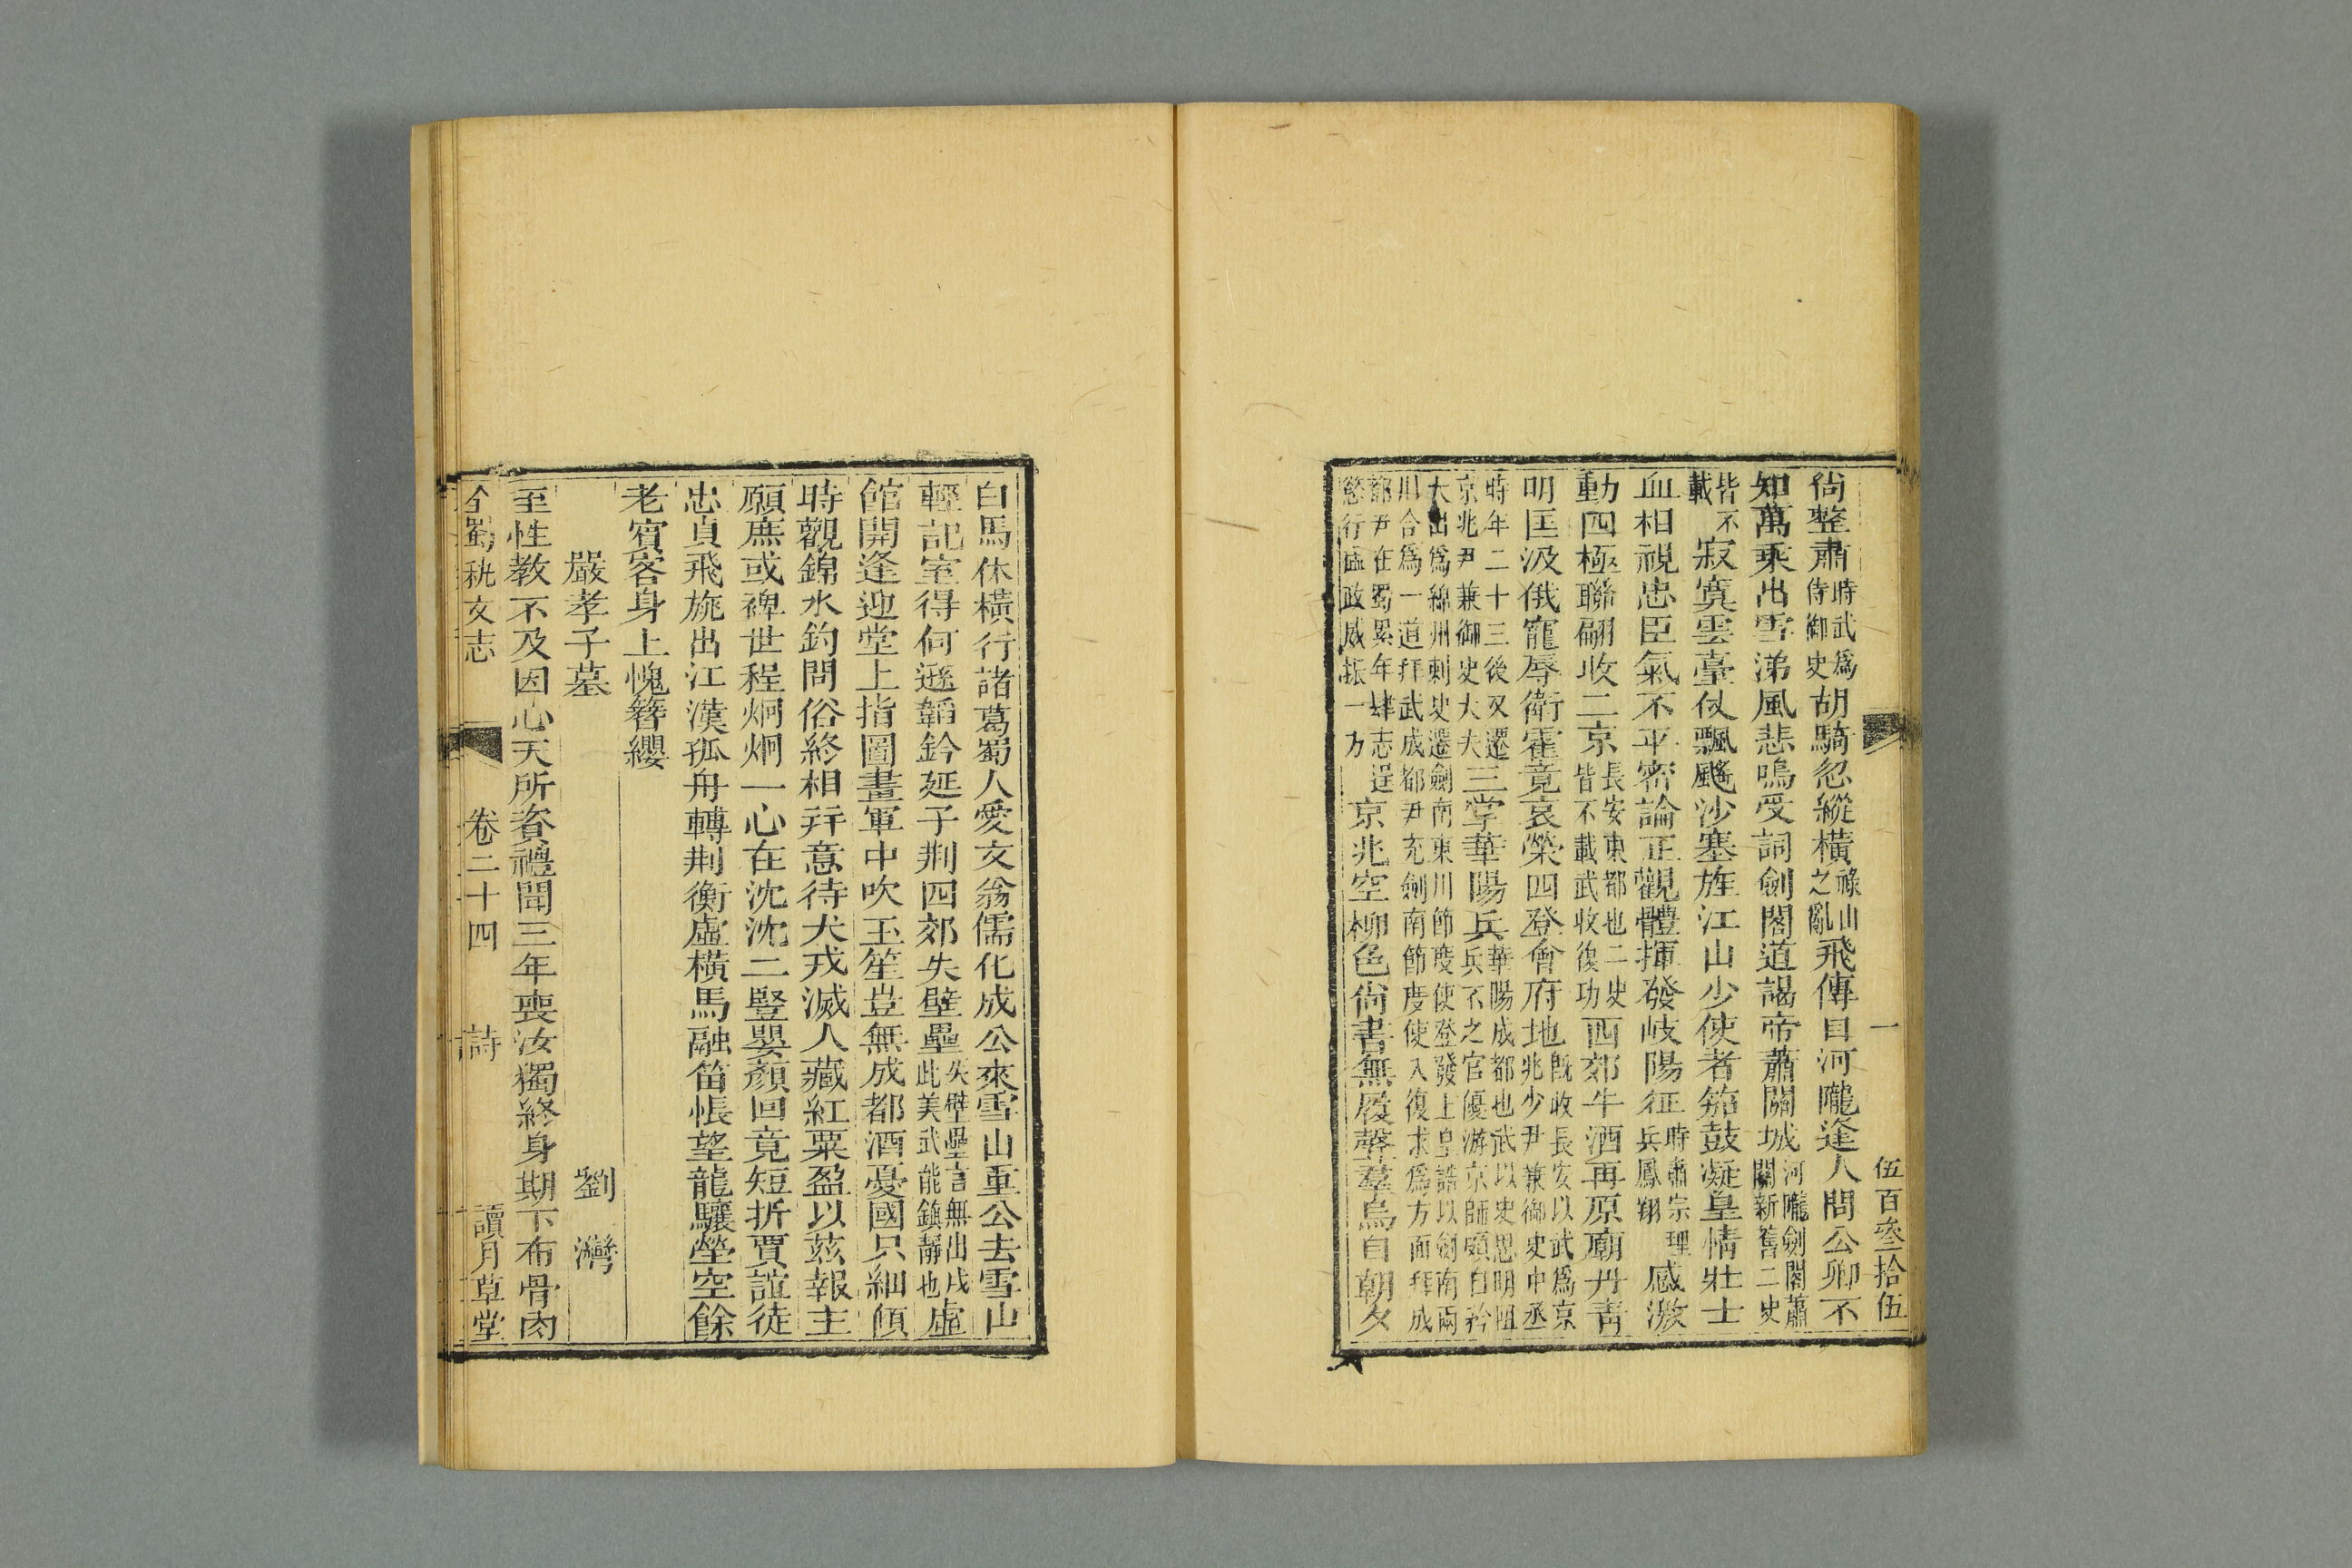 一 伍百叁拾伍
尙整肅時武爲侍御史胡騎忽縱橫祿山之亂飛傳自河隴逢人問公卿不
知萬乘出雪涕風悲鳴受詞劍閣道謁帝蕭關城河隴劍閣蕭關新舊二史
皆不載寂寞雲臺仗飄颻沙塞旌江山少使者笳鼓凝皇情壯士
血相視忠臣氣不平密論正觀體揮發岐陽征時肅宗理兵鳳翔感激
動四極聯翩收二京長安東都也二史皆不載武收復功西郊牛酒再原廟丹靑
明匡汲俄寵辱衛霍竟哀榮四登會府地旣收長安以武爲京兆少尹兼御史中丞
時年二十三後又遷京兆尹兼御史大夫三掌華陽兵華陽成都也武以史思明阻兵不之官優游京師頗自矜
大出爲綿州刺史遷劍南東川節度使登發上皇誥以劍南兩川合爲一道拜武成都尹充劍南節度使入復求爲方面拜成
都尹在蜀累年肆志逞慾行猛政威振一方京兆空柳色尙書無履聲羣烏自朝夕
白馬休橫行諸葛蜀人愛文翁儒化成公來雪山重公去雪山
輕記室得何遜韜鈐延子荆四郊失壁壘失壁壘言無出戍此美武能鎮靜也虛
館開逢迎堂上指圖畫軍中吹玉笙豈無成都酒憂國只細傾
時觀錦水釣問俗終相幷意待犬戎滅人藏紅粟盈以茲報主
願庶或裨世程炯炯一心在沈沈二豎嬰顏回竟短折賈誼徒
忠貞飛旐出江漢孤舟轉荆衡虛橫馬融笛悵望龍驤塋空餘
老賓客身上愧簪纓
嚴孝子墓 劉灣
至性教不及因心天所資禮聞三年喪汝獨終身期下布骨肉
全蜀秇文志 卷二十四 詩 讀月草堂